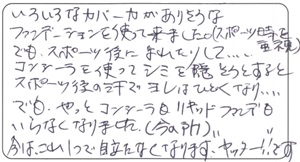 いろいろなカバー力がありそうな
ファンデーションを使って来ました。(スポーツ時を重視)
でも、スポーツ後にまだらたりして....
コンシーラを使ってシミを隠そうとすると
スポーツ後の汗でヨレはひどくなり....
でも、やっとコンシーラもリキッドファンデも
いらなくなりました。(今の所)
今は、これ1つで目立たなくなります。ヤッター!!です